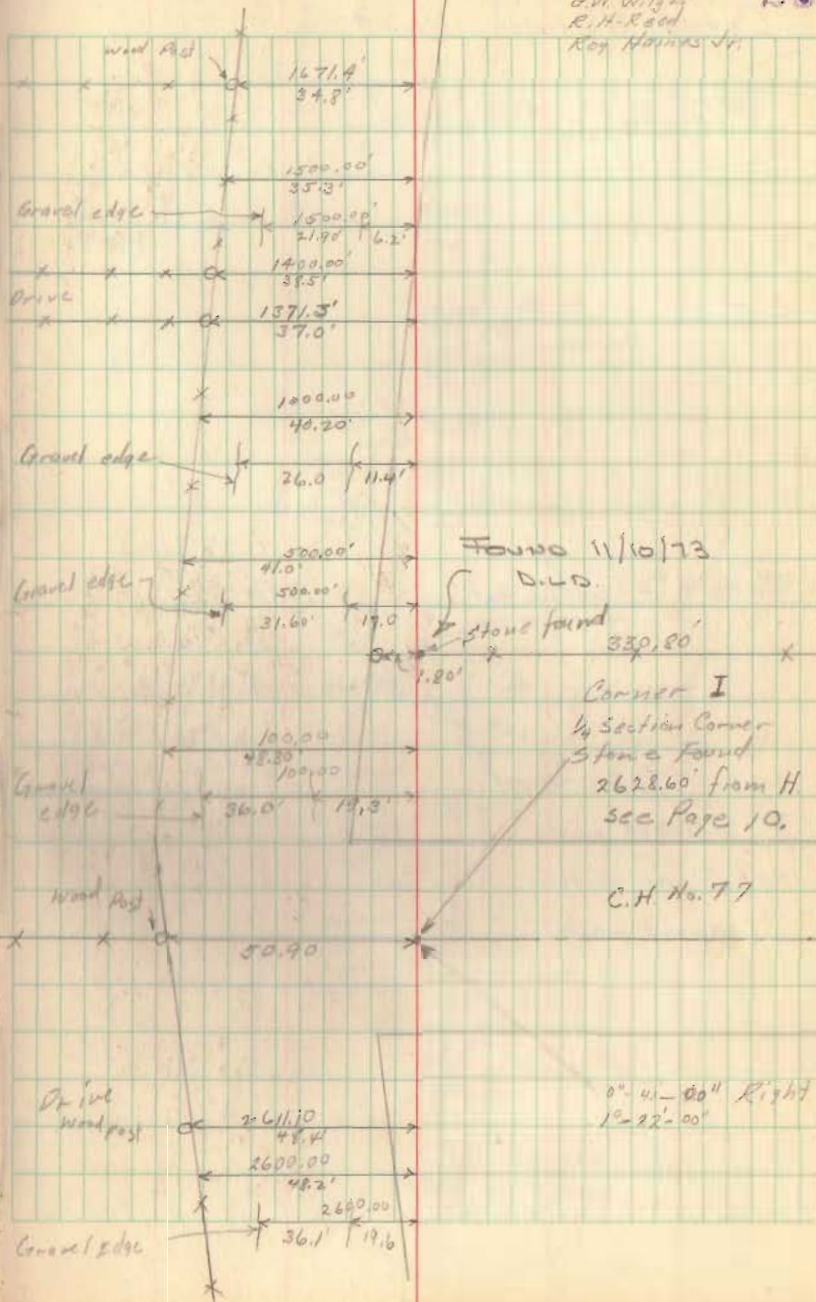 R.H. Reed
Roy Haines Jr.
Wood Post
1671.4'
34.8'
1500.00'
35.3'
Gravel edge
1500.00'
21.90 6.2'
1400.00'
38.5'
Drive
1371.3'
37.0'
1000.00
40.20'
Gravel edge
26.0 11.4'
500.00'
41.0'
Found 11/10/73
D.L.D.
Gravel edge
500.00'
31.60' 17.0
Stone found
330.80'
1.80'
Corner I
1/4 Section Corner
Stone Found
2628.60' from H
see Page 10.
100.00
48.80'
100.00
Gravel
edge
36.0' 19.3'
C.H. No. 77
Wood Post
50.90
0°-41-00" Right
1°-22'-00"
Drive
Wood post
2611.10
48.4'
2600.00
48.2'
2600.00
Gravel Edge
36.1' 19.6